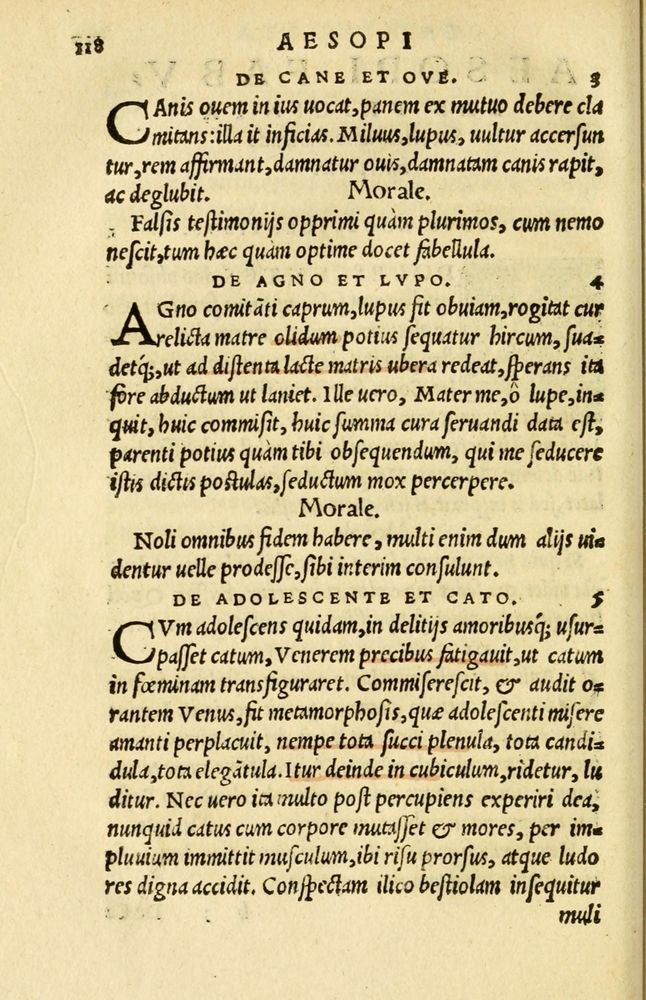 118 AESOPI
DE CANE ET OVE. 3
CAnis ouem in ius uocat, panem ex mutuo debere cla
mitans: illa it inficias. Miluus, lupus, uultur accersun
tur, rem affirmant, damnatur ouis, damnatam canis rapit,
ac deglubit. Morale.
Falsis testimonijs opprimi quàm plurimos, cum nemo
nescit, tum hæc quàm optime docet fabellula.
DE AGNO ET LVPO. 4
AGno comitāti caprum, lupus fit obuiam, rogitat cur
relicta matre olidum potius sequatur hircum, sua-
detq́;, ut ad distenta lacte matris ubera redeat, sperans ita
fore abductum ut laniet. Ille uero, Mater me, ô lupe, in-
quit, huic commisit, huic summa cura seruandi data est,
parenti potius quàm tibi obsequendum, qui me seducere
istis dictis postulas, seductum mox percerpere.
Morale.
Noli omnibus fidem habere, multi enim dum alijs ui-
dentur uelle prodesse, sibi interim consulunt.
DE ADOLESCENTE ET CATO. 5
CVm adolescens quidam, in delitijs amoribusq́; usur-
passet catum, Venerem precibus fatigauit, ut catum
in fœminam transfiguraret. Commiserescit, & audit o-
rantem Venus, fit metamorphosis, quæ adolescenti misere
amanti perplacuit, nempe tota succi plenula, tota candi-
dula, tota elegātula. Itur deinde in cubiculum, ridetur, lu
ditur. Nec uero ita multo post percupiens experiri dea,
nunquid catus cum corpore mutasset & mores, per im-
pluuium immittit musculum, ibi risu prorsus, atque ludo
res digna accidit. Conspectam ilico bestiolam insequitur
muli